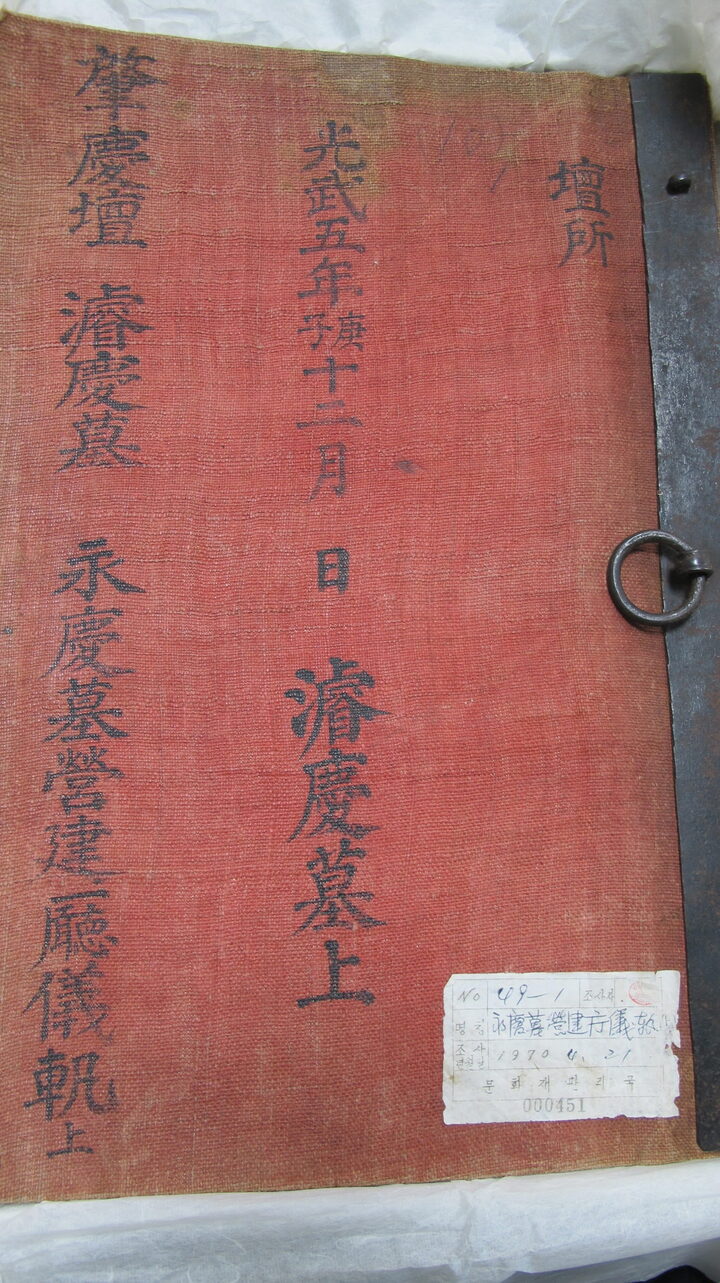 壇所
光武五年庚子十二月 日 濬慶墓上
肇慶壇 濬慶墓 永慶墓營建廳儀軌 上
No 49-1 조사자
명칭 永慶墓營建庁儀軌
조사년월일 1970 4. 21
문화재관리국
000451